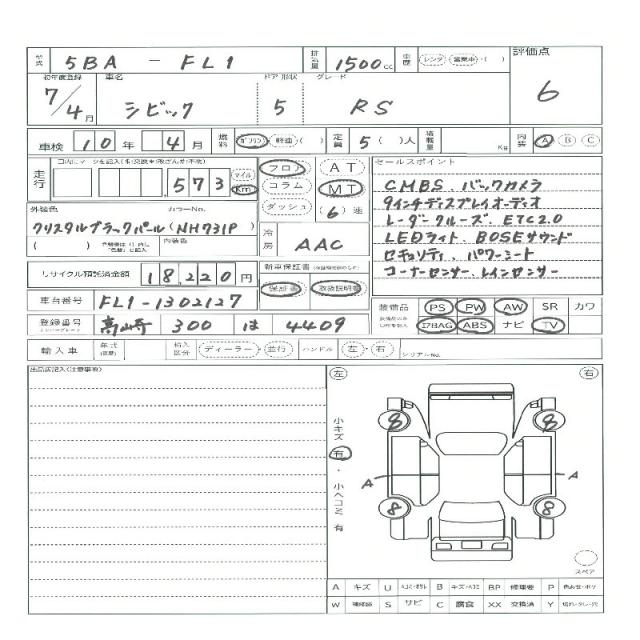 型式 5BA - FL1 排気量 1500cc 車歴 レンタ・営業車・( ) 評価点
初年度登録 車名 ドア 形状 グレード
7/4月 シビック 5 RS 6
車検 10年 4月 燃料 ガソリン・軽油・( ) 定員 5( )人 積載量 Kg 内装 A B C
走行 573 マイル Km フロア AT セールスポイント
コラム MT
ダッシュ (6)速
CMBS、バックカメラ
9インチディスプレイオーディオ
レーダークルーズ、ETC2.0
LEDライト、BOSEサウンド
セキュリティ、パワーシート
コーナーセンサー、レインセンサー
外装色 カラーNo.
クリスタルブラックパール(NH731P)
( ) 内装色
冷房 AAC
リサイクル預託済金額 18,220円 新車保証書
保証書 取扱説明書
車台番号 FL1-1302127
登録番号 300 は 4409
装備品 PS PW AW SR カワ
エアBAG ABS ナビ TV
輸入車 年式 輸入区分 ディーラー・並行 ハンドル 左・右 シリアルNo.
出品店記入(注意事項)
左 右
小キズ 有・小ヘコミ 有
8 8
A A
8 8
スペア
A キズ U B キズ・ヘコミ BP 修理要 P
W 補修跡 S サビ C 腐食 XX 交換済 Y